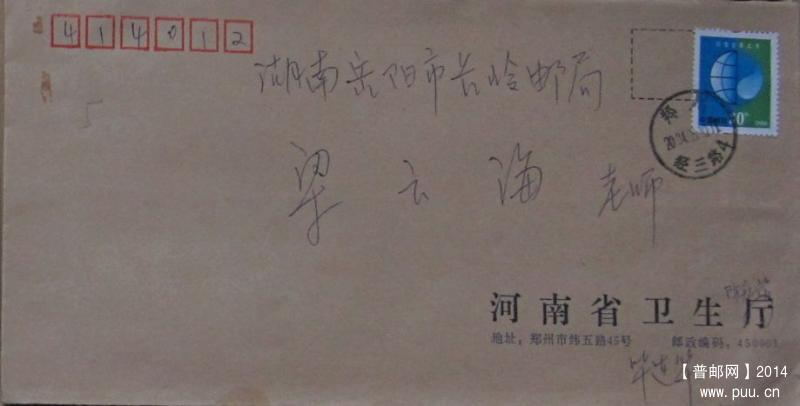 414012
湖南岳阳市长岭邮局
梁云海 老师
河南省卫生厅
地址：郑州市纬五路45号 邮政编码：450003
经三路4
【普邮网】2014
www.puu.cn